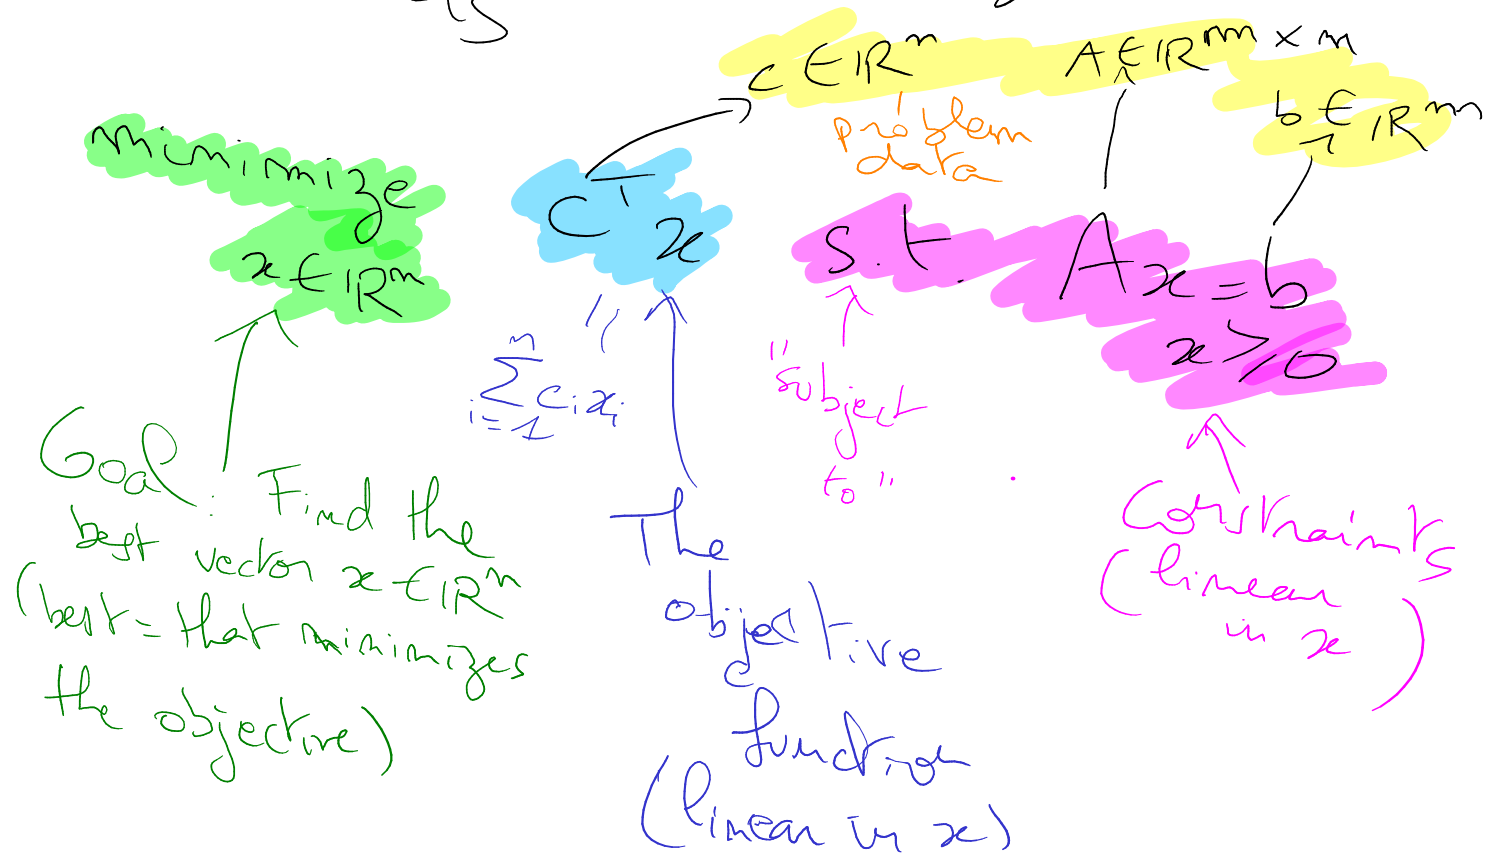 c ∈ ℝⁿ A ∈ ℝᵐ × ⁿ
b ∈ ℝᵐ
problem
data
minimize
x ∈ ℝⁿ
cᵀx
s.t. Ax = b
x ≥ 0
"
n
∑ cᵢxᵢ
i=1
"subject
to"
Goal : Find the
best vector x ∈ ℝⁿ
(best = that minimizes
the objective)
The
objective
function
(linear in x)
Constraints
(linear
in x)